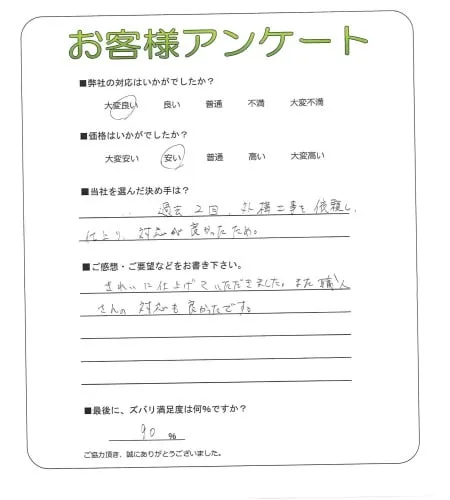 お客様アンケート
■弊社の対応はいかがでしたか？
大変良い 良い 普通 不満 大変不満
■価格はいかがでしたか？
大変安い 安い 普通 高い 大変高い
■当社を選んだ決め手は？
過去2回、外構工事を依頼し、
仕上り、対応が良かったため。
■ご感想・ご要望などをお書き下さい。
きれいに仕上げていただきました。また職人
さんの対応も良かったです。
■最後に、ズバリ満足度は何%ですか？
90 %
ご協力頂き、誠にありがとうございました。